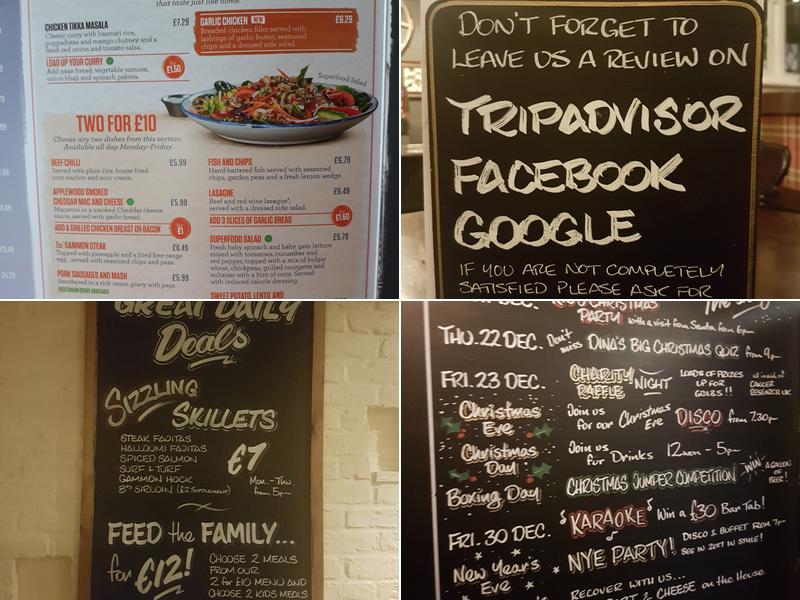 that taste just like home.
CHICKEN TIKKA MASALA £7.29
Classic curry with basmati rice,
poppadoms and mango chutney and a
fresh red onion and tomato salsa.
LOAD UP YOUR CURRY
Add naan bread, vegetable samosa,
onion bhaji and spinach pakora.
for £1.50
GARLIC CHICKEN NEW £8.29
Breaded chicken fillet served with
lashings of garlic butter, seasoned
chips and a dressed side salad.
Superfood Salad
TWO FOR £10
Choose any two dishes from this section.
Available all day Monday-Friday
BEEF CHILLI £5.99
Served with plain rice, house fried
corn nachos and sour cream.
APPLEWOOD SMOKED
CHEDDAR MAC AND CHEESE £5.99
Macaroni in a smoked Cheddar cheese
sauce, served with garlic bread.
ADD A GRILLED CHICKEN BREAST OR BACON
£1
7oz GAMMON STEAK £6.49
Topped with pineapple and a fried free-range
egg, served with seasoned chips and peas.
PORK SAUSAGES AND MASH £5.99
Smothered in a rich onion gravy with peas.
FISH AND CHIPS £6.79
Hand-battered fish served with seasoned
chips, garden peas and a fresh lemon wedge.
LASAGNE £6.49
Beef and red wine lasagne,
served with a dressed side salad.
ADD 3 SLICES OF GARLIC BREAD
for £1.60
SUPERFOOD SALAD £5.79
Fresh baby spinach and baby gem lettuce
mixed with tomatoes, cucumber and
red pepper, topped with a mix of bulgar
wheat, chickpeas, grilled courgette and
sultanas with a hint of mint. Served
with reduced calorie dressing.
SWEET POTATO, LENTIL AND
DON'T FORGET TO
LEAVE US A REVIEW ON
TRIPADVISOR
FACEBOOK
GOOGLE
IF YOU ARE NOT COMPLETELY
SATISFIED PLEASE ASK FOR
GREAT DAILY
Deals
SIZZLING
SKILLETS
STEAK FAJITAS
HALLOUMI FAJITAS
SPICED SALMON
SURF & TURF
GAMMON HOCK
8oz SIRLOIN (£2 SUPPLEMENT)
£7
Mon-Thu
from 5pm
FEED the FAMILY...
for £12!
CHOOSE 2 MEALS
FROM OUR
2 for £10 MENU AND
CHOOSE 2 KIDS MEALS
CHRISTMAS
PARTY with a visit from Santa from 6pm
THU. 22 DEC. Don't miss DINA'S BIG CHRISTMAS QUIZ from 9pm
FRI. 23 DEC. CHARITY RAFFLE NIGHT LOADS OF PRIZES UP FOR GRABS!! all in aid of CANCER RESEARCH UK
Christmas Eve Join us for our Christmas Eve DISCO from 7.30pm
Christmas Day Join us for Drinks 12noon - 5pm
Boxing Day CHRISTMAS JUMPER COMPETITION WIN A GALLON OF BEER!
FRI. 30 DEC. KARAOKE Win a £30 Bar Tab!
New Year's Eve NYE PARTY! DISCO & BUFFET FROM 7pm SEE IN 2017 IN STYLE!
RECOVER WITH US...
& CHEESE on the House